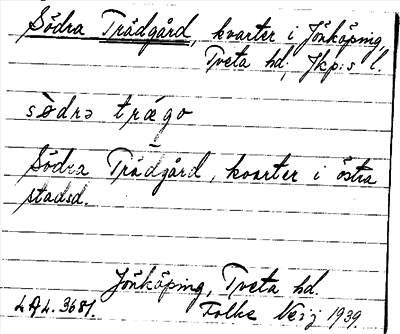 Södra Trädgård, kvarter i Jönköping,
Tveta hd; Jkp:s l.
södrə trægo
Södra Trädgård, kvarter i östra
stadsd.
Jönköping, Tveta hd.
LAL. 3681. Folke Neij 1939.